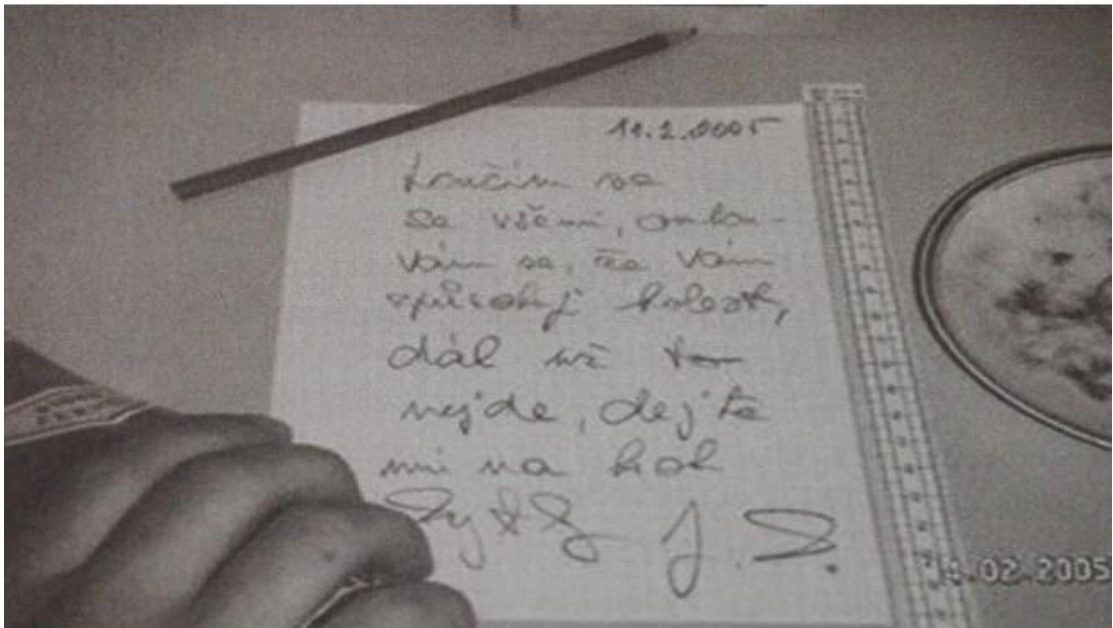 Loučím se
se všemi, omlou-
vám se, že vám
způsobuji bolest,
dál už to
nejde, dejte
mi na hrob
14.02.2005